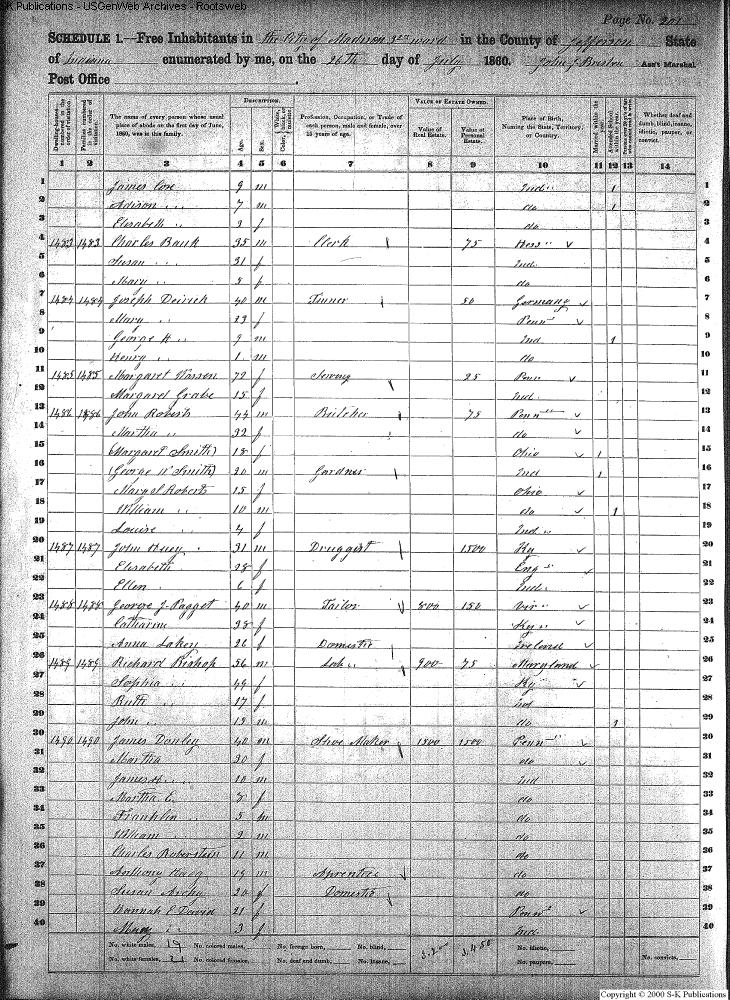 S-K Publications - USGenWeb Archives - Rootsweb
Page No. 201
SCHEDULE 1.—Free Inhabitants in the City of Madison 3rd ward in the County of Jefferson State
of Indiana enumerated by me, on the 26th day of July 1860. Ass't Marshal
Post Office
Dwelling-houses— numbered in the order of visitation.
Families numbered in the order of visitation.
The name of every person whose usual place of abode on the first day of June, 1860, was in this family.
DESCRIPTION.
Age. Sex. White, Color, black, or mulatto.
Profession, Occupation, or Trade of each person, male and female, over 15 years of age.
VALUE OF ESTATE OWNED.
Value of Real Estate. Value of Personal Estate.
Place of Birth, Naming the State, Territory, or Country.
Married within the year. Attended School within the year.
Whether deaf and dumb, blind, insane, idiotic, pauper, or convict.
1 2 3 4 5 6 7 8 9 10 11 12 13 14
1 James 9 m Ind 1 1
2 Adison " 7 m do 1 2
3 Elisabeth " 3 f do 3
4 1483 1483 Charles Bank 35 m Clerk 75 4
5 Susan " 31 f Ind 5
6 Mary " 5 f do 6
7 1484 1484 Joseph 40 m Tinner 50 Germany 7
8 Mary " 23 f Penn 8
9 George H " 9 m Ind 1 9
10 Henry " 1 m do 10
11 1485 1485 Margaret 72 f Sewing 25 Penn 11
12 Margaret 15 f Ind 12
13 1486 1486 John Roberts 44 m Butcher 75 Penn 13
14 Martha " 32 f do 14
15 (Margaret Smith) 18 f Ohio 1 15
16 (George W Smith) 20 m Gardner Ind 1 16
17 Roberts 15 f Ohio 17
18 William " 10 m do 1 18
19 Louise " 4 f Ind 19
20 1487 1487 John Huey 31 m Druggist 1500 Ky 20
21 Elisabeth 28 f Eng 21
22 Ellen 6 f Ind 22
23 1488 1488 George J Pagget 40 m Tailor 800 150 Vir 23
24 Catharine 38 f Ky 24
25 Anna Lakey 26 f Domestic Ireland 25
26 1489 1489 Richard Bishop 56 m Lab 900 75 Maryland 26
27 Sophia " 49 f Ky 27
28 Ruth " 17 f Ind 28
29 John " 13 m do 1 29
30 1490 1490 James Donley 40 m Shoe Maker 1500 1500 Penn 30
31 Martha 30 f do 31
32 James H " 10 m Ind 32
33 Martha E. 8 f do 33
34 Franklin " 5 m do 34
35 William " 2 m do 35
36 Charles 11 m do 36
37 Anthony m Aprentice do 37
38 Susan 20 f Domestic do 38
39 Hannah E David 21 f Penn 39
40 Mary 3 f Ind 40
No. white males, 19 No. colored males, No. foreign born, No. blind, 3.200 3.450 No. idiotic,
No. white females, 21 No. colored females, No. deaf and dumb, No. insane, No. paupers, No. convicts,
Copyright © 2000 S-K Publications